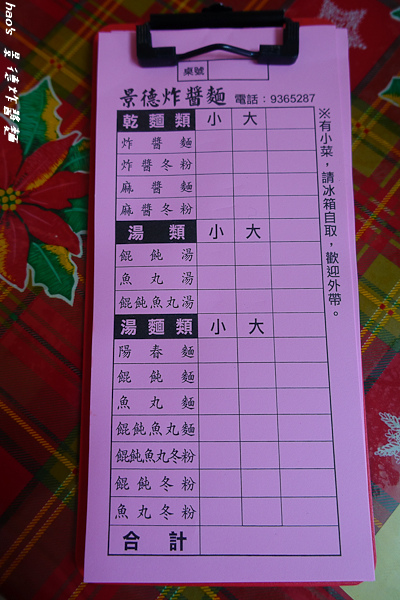 hao's 景德炸醬麵
桌號
景德炸醬麵 電話：9365287
乾麵類 小 大
炸醬麵
炸醬冬粉
麻醬麵
麻醬冬粉
湯類 小 大
餛飩湯
魚丸湯
餛飩魚丸湯
湯麵類 小 大
陽春麵
餛飩麵
魚丸麵
餛飩魚丸麵
餛飩魚丸冬粉
餛飩冬粉
魚丸冬粉
合計
※有小菜，請冰箱自取，歡迎外帶。